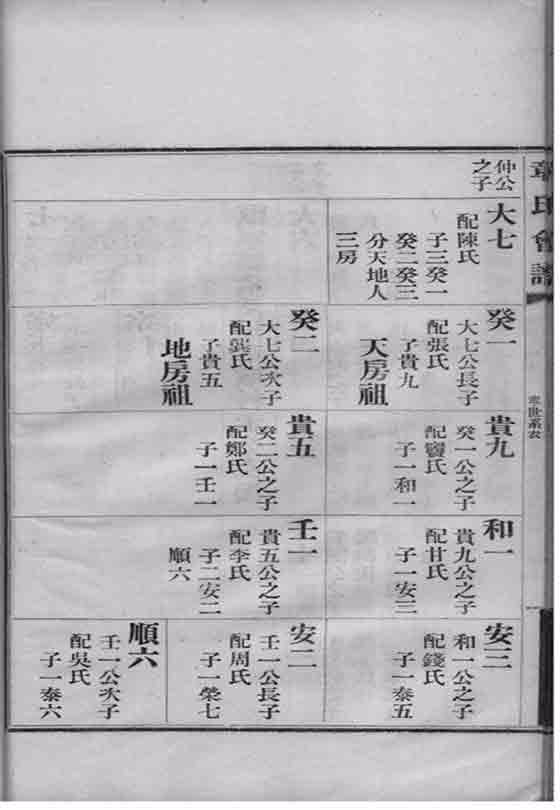 章氏會譜
章世系表
仲公
之子
大七
配陳氏
子三癸一
癸二癸三
分天地人
三房
癸一
大七公長子
配張氏
子貴九
天房祖
癸二
大七公次子
配龔氏
子貴五
地房祖
貴九
癸一公之子
配竇氏
子一和一
貴五
癸二公之子
配鄭氏
子一壬一
和一
貴九公之子
配甘氏
子一安三
壬一
貴五公之子
配李氏
子二安二
順六
安三
和一公之子
配錢氏
子一泰五
安二
壬一公長子
配周氏
子一榮七
順六
壬一公次子
配吳氏
子一泰六